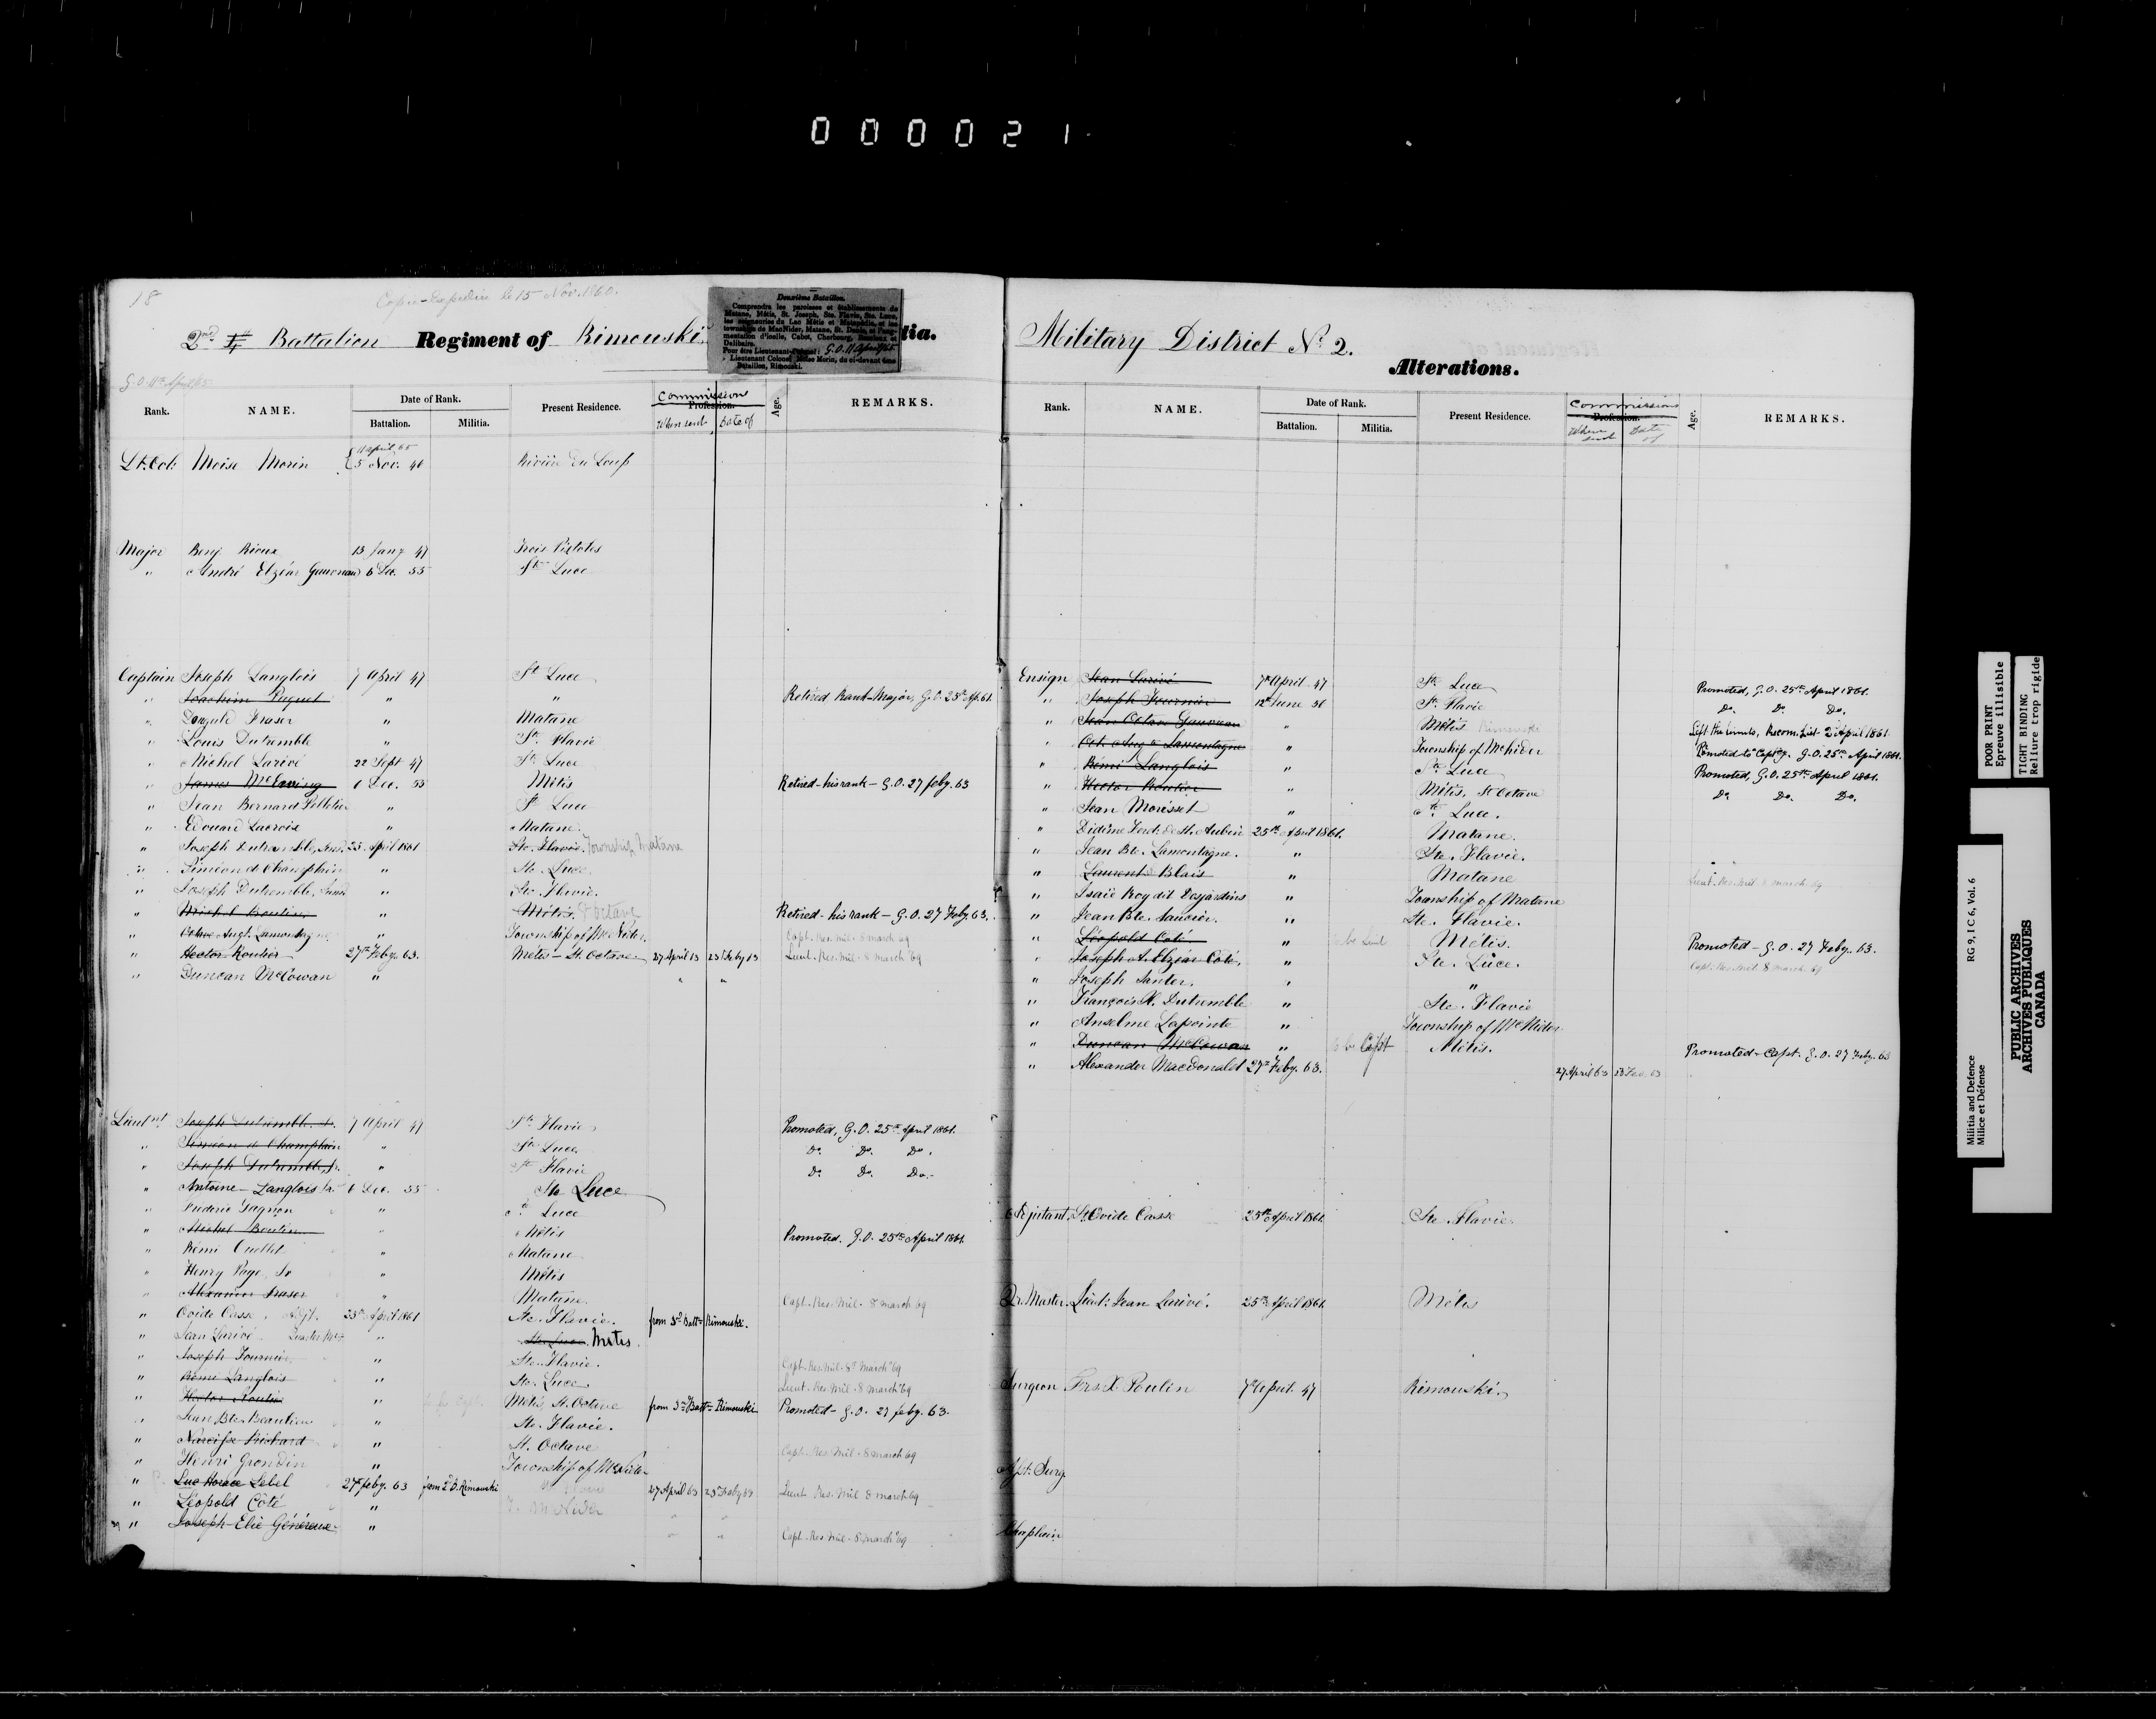 000021
18
Copie Expédiée le 15 Nov. 1860.
2nd Battalion Regiment of Rimouski
Deuxième Bataillon.
Comprendra les paroisses et établissements de
Matane, Métis, St. Joseph, Ste. Flavie, Ste. Luce,
les seigneuries du Lac Métis et Matapédia, et les
townships de MacNider, Matane, St. Denis et l'aug-
mentation d'icelle, Cabot, Cherbourg,
Dalibaire.
Pour être Lieutenant-Colonel: G.O. 11 April 65
Lieutenant Colonel Moïse Morin, du ci-devant 4me
Bataillon, Rimouski.
tia.
G.O. 11th April 65
Rank. NAME. Date of Rank. Battalion. Militia. Present Residence. Commission Profession. When sent Date of Age. REMARKS.
11 April 65
Lt. Col. Moise Morin 5 Nov. 46 Rivière du Loup
Major Benj. Rioux 13 Jany 47 Trois Pistoles
" André Elzéar Gauvreau 6 Dec. 55 Ste Luce
Captain Joseph Langlois 7 April 47 Ste Luce
" Joachim Paquet " " Retired Rank-Major, G.O. 25th Ap. 61.
" Fraser " Matane
" Louis Dutremble " Ste. Flavie
" Michel Larivé 22 Sept 47 Ste Luce
" James McEwing 6 Dec. 55 Métis Retired - his rank - G.O. 27 feby. 63
" Jean Bernard Pelletier " Ste Luce
" Edouard Lacroix " Matane.
" Joseph Dutremble, Senr. 25 April 1861 Ste. Flavie. Township Matane
" Siméon de Champlain " Ste. Luce.
" Joseph Dutremble, Junr " Ste. Flavie.
" Michel Boutin " Métis. St Octave Retired - his rank - G.O. 27 Feby. 63.
" Octave Augt. Lamontagne " Township of McNider. Capt. Res. Mil. 8 march 69
" Hector Routier 27th Feby. 63. Métis - St. Octave 27 April 63 23 Feby 63 Lieut. Res. Mil. 8 march '69
" Duncan McCowan " " "
Lieutnt Joseph Dutremble S. 7 April 47 Ste Flavie Promoted, G.O. 25th April 1861.
" Siméon de Champlain " Ste Luce Do. Do. Do.
" Joseph Dutremble J. " Ste Flavie Do. Do. Do.
" Antoine Langlois 6 Dec. 55 Ste Luce
" Frédéric Gagnon " Ste Luce
" Michel Boutin " Métis Promoted. G.O. 25th April 1861.
" Rémi Ouellet " Matane
" Henry Page, Sr " Métis
" Alexander Fraser " Matane. Capt. Res. Mil. 8 march 69
" Ovide Casse, Adjt. 25th April 1861 Ste. Flavie. from 3rd Battn Rimouski.
" Jean Larivé Quarter Mr " Ste. Luce. Métis.
" Joseph Fournier " Ste. Flavie. Capt. Res. Mil. 8th March '69
" Rémi Langlois " Ste. Luce. Lieut. Res. Mil. 8 march '69
" Hector Routier " to be Capt. Métis, St. Octave from 3rd Battn Rimouski Promoted - G.O. 27 feby. 63.
" Jean Bte. Beaulieu " Ste. Flavie.
" Narcisse Richard " St. Octave Capt. Res. Mil. 8 march 69
" Henri Grondin " Township of McNider
" Luc Horace Lebel 27th feby. 63 from 2d B. Rimouski 27 April 63 23 Feby 63 Lieut. Res. Mil. 8 march 69
" Léopold Côté " T. McNider " "
" Joseph Elie Généreux " " " Capt. Res. Mil. 8 march '69
Military District No. 2.
Alterations.
Rank. NAME. Date of Rank. Battalion. Militia. Present Residence. Commissions Profession. When sent Date of Age. REMARKS.
Ensign Jean Larivé 7 April 47 Ste Luce Promoted, G.O. 25th April 1861.
" Joseph Fournier 12 June 56 Ste Flavie Do. Do. Do.
" Jean Octave Gauvreau " Métis Rimouski Left the limits, Recom. List 2 April 1861
" Oct. Augte Lamontagne " Township of McNider Promoted to Captcy. G.O. 25th April 1861.
" Rémi Langlois " Ste Luce Promoted, G.O. 25th April 1861.
" Hector Routier " Métis, St Octave Do. Do. Do.
" Jean Morisset " Ste. Luce.
" Didime Ferd. de St. Aubin 25th April 1861. Matane.
" Jean Bte. Lamontagne. " Ste. Flavie.
" Laurent Blais " Matane Lieut. Res. Mil 8 march 69
" Isaïe Roy dit Desjardins " Township of Matane
" Jean Bte. Saucier. " Ste. Flavie.
" Léopold Coté " to be Lieut Métis. Promoted - G.O. 27 Feby. 63.
" Joseph A. Elzéar Coté. " Ste. Luce. Capt. Res. Mil. 8 march 69
" Joseph Santer. " "
" François X. Dutremble " Ste. Flavie
" Anselme Lapointe " Township of McNider
" Duncan McCowan " to be Capt Métis. Promoted - Capt. G.O. 27 Feby. 63
" Alexander MacDonald 27th Feby. 63. 27 April 63 23 Feb. 63
Adjutant. Lt. Ovide Casse 25th April 1861. Ste. Flavie.
Qr. Master. Lieut: Jean Larivé. 25th April 1861. Métis
Surgeon Frs. X. Poulin 7 April 47 Rimouski.
Asst. Surg.
Chaplain
POOR PRINT
Epreuve illisible
TIGHT BINDING
Reliure trop rigide
RG 9, I C 6, Vol. 6
Militia and Defence
Milice et Défense
PUBLIC ARCHIVES
ARCHIVES PUBLIQUES
CANADA